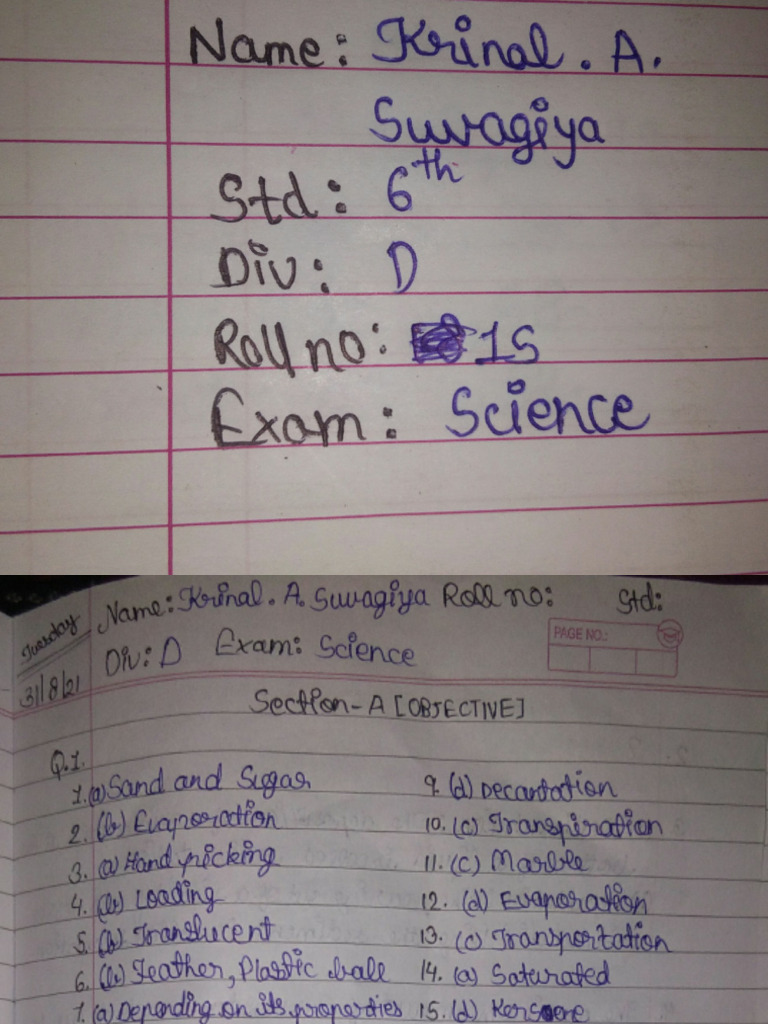 Name: Krinal. A.
Suvagiya
Std: 6th
Div: D
Roll no: 15
Exam: Science
Tuesday
31/8/21
Name: Krinal. A. Suvagiya Roll no: Std:
Div: D Exam: Science
PAGE NO.:
Section-A [OBJECTIVE]
Q.1.
1. (a) Sand and Sugar
2. (b) Evaporation
3. (a) Hand picking
4. (b) Loading
5. (b) Translucent
6. (b) Feather, Plastic ball
7. (a) Depending on its properties
9. (d) Decantation
10. (c) Transpiration
11. (c) Marble
12. (d) Evaporation
13. (c) Transportation
14. (a) Saturated
15. (d)